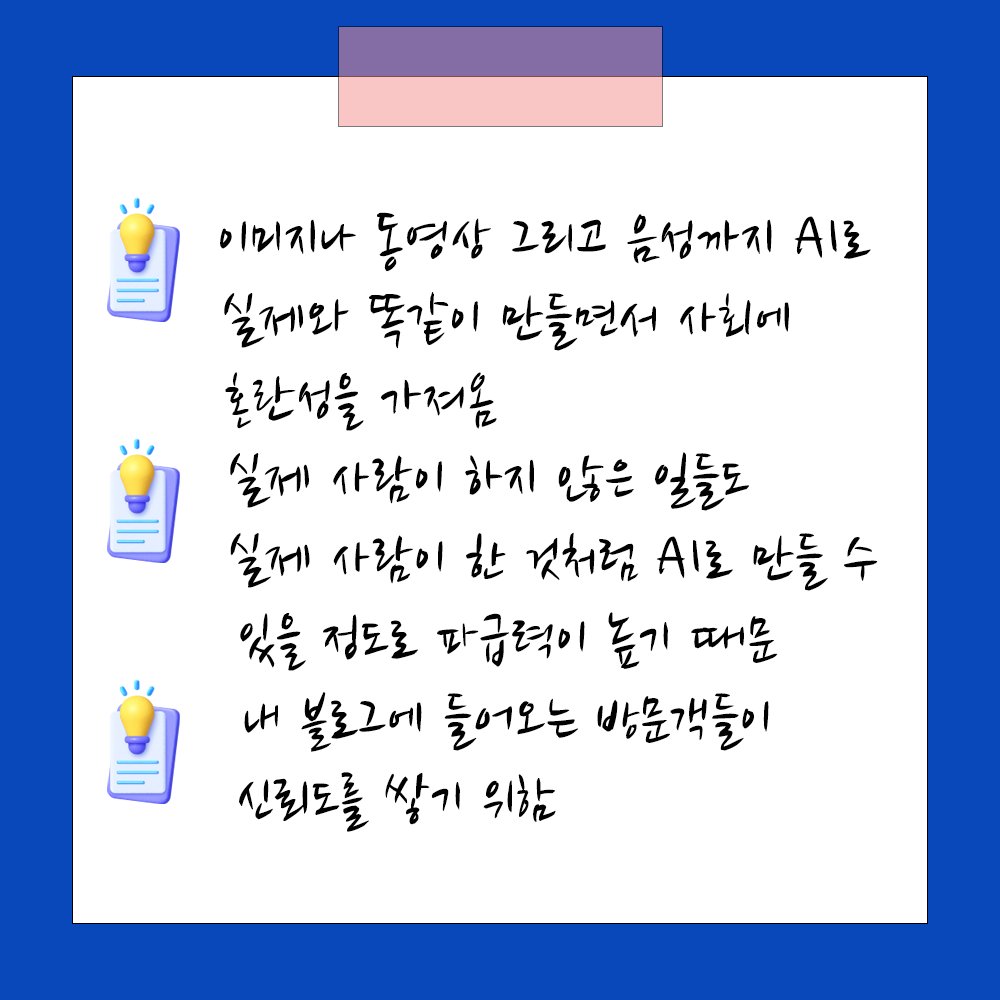 이미지나 동영상 그리고 음성까지 AI로
실제와 똑같이 만들면서 사회에
혼란성을 가져옴
실제 사람이 하지 않은 일들도
실제 사람이 한 것처럼 AI로 만들 수
있을 정도로 파급력이 높기 때문
내 블로그에 들어오는 방문객들이
신뢰도를 쌓기 위함